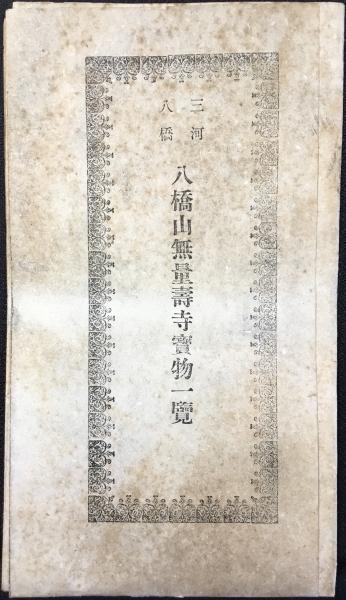 三河
八橋
八橋山無量壽寺寶物一覽